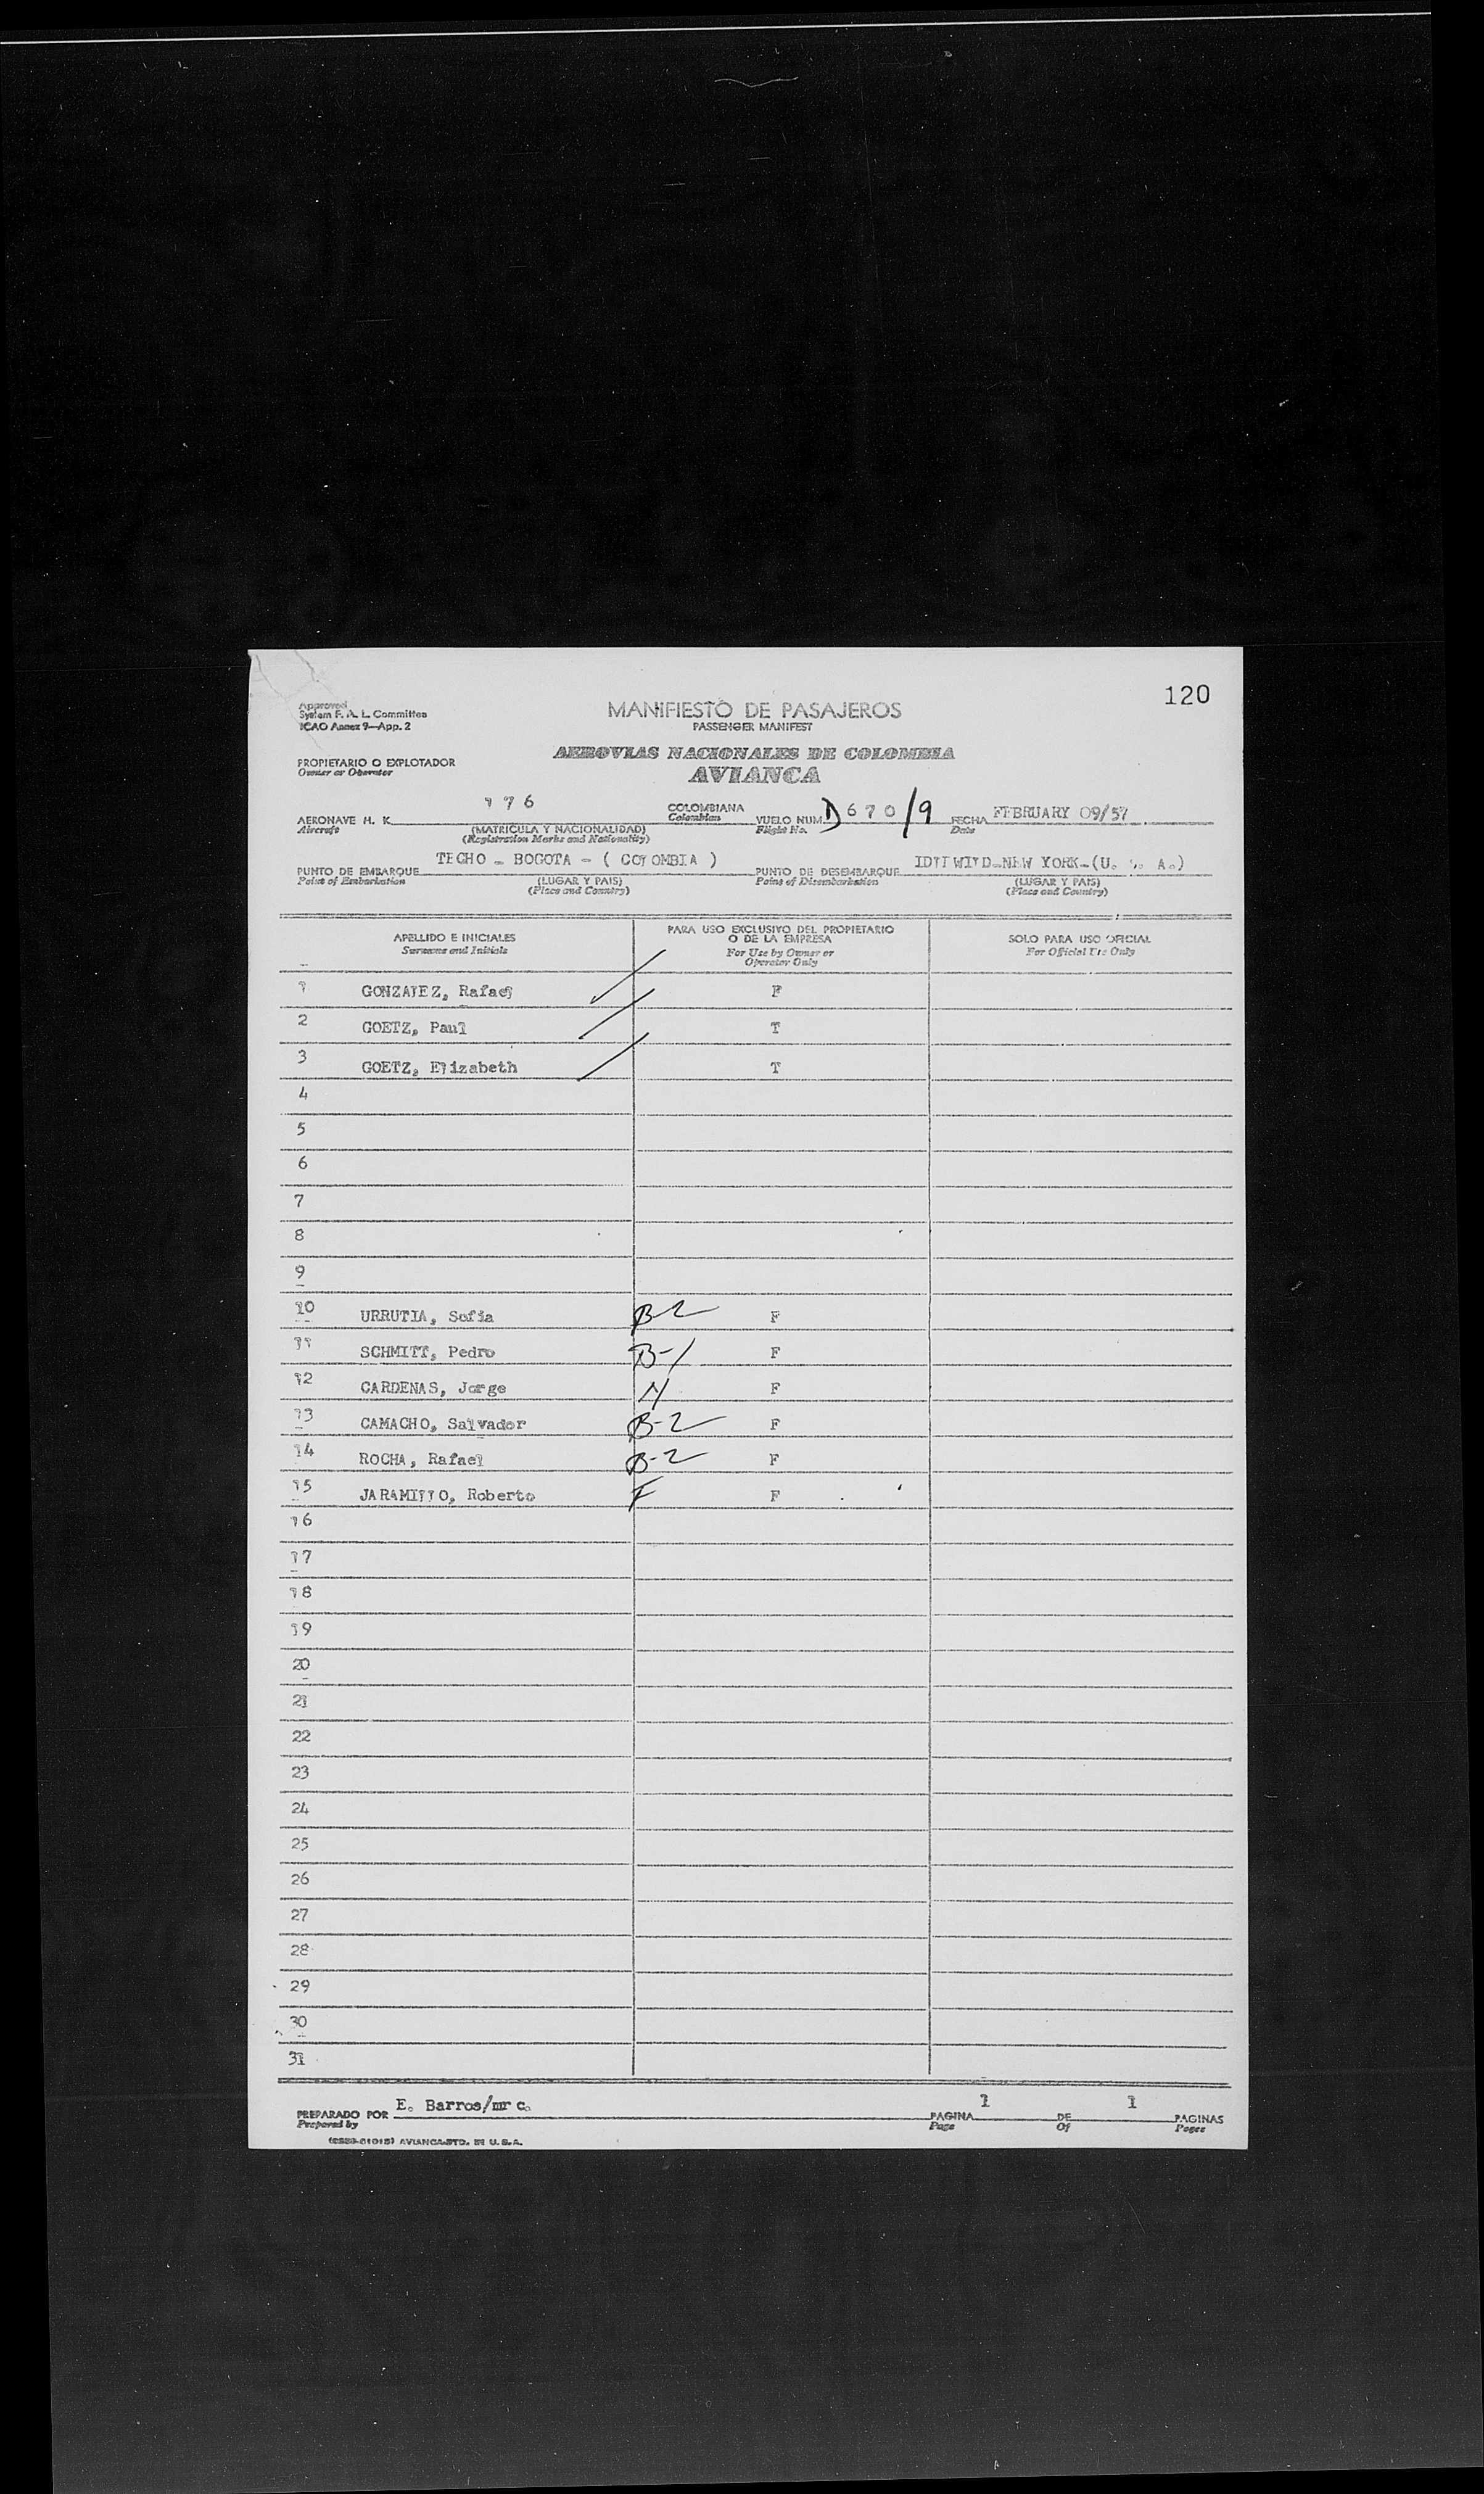 120
Approved
System F. A. L. Committee
ICAO Annex 9—App. 2
MANIFIESTO DE PASAJEROS
PASSENGER MANIFEST
PROPIETARIO O EXPLOTADOR
Owner or Operator
AEROVIAS NACIONALES DE COLOMBIA
AVIANCA
AERONAVE H. K. 176 COLOMBIANA VUELO NUM. D670/9 FECHA FEBRUARY 09/57
Aircraft (MATRICULA Y NACIONALIDAD) Colombian Flight No. Date
(Registration Marks and Nationality)
PUNTO DE EMBARQUE TECHO - BOGOTA - ( COLOMBIA ) PUNTO DE DESEMBARQUE IDLEWILD-NEW YORK-(U. S. A.)
Point of Embarkation (LUGAR Y PAIS) Point of Disembarkation (LUGAR Y PAIS)
(Place and Country) (Place and Country)
APELLIDO E INICIALES PARA USO EXCLUSIVO DEL PROPIETARIO O DE LA EMPRESA SOLO PARA USO OFICIAL
Surname and Initials For Use by Owner or Operator Only For Official Use Only
1 GONZALEZ, Rafael F
2 GOETZ, Paul T
3 GOETZ, Elizabeth T
4
5
6
7
8
9
10 URRUTIA, Sofia B-2 F
11 SCHMITT, Pedro B-1 F
12 CARDENAS, Jorge N F
13 CAMACHO, Salvador B-2 F
14 ROCHA, Rafael B-2 F
15 JARAMILLO, Roberto F F
16
17
18
19
20
21
22
23
24
25
26
27
28
29
30
31
PREPARADO POR E. Barros/mrc. PAGINA 1 DE 1 PAGINAS
Prepared by Page Of Pages
AVIANCA-STD. IN U.S.A.